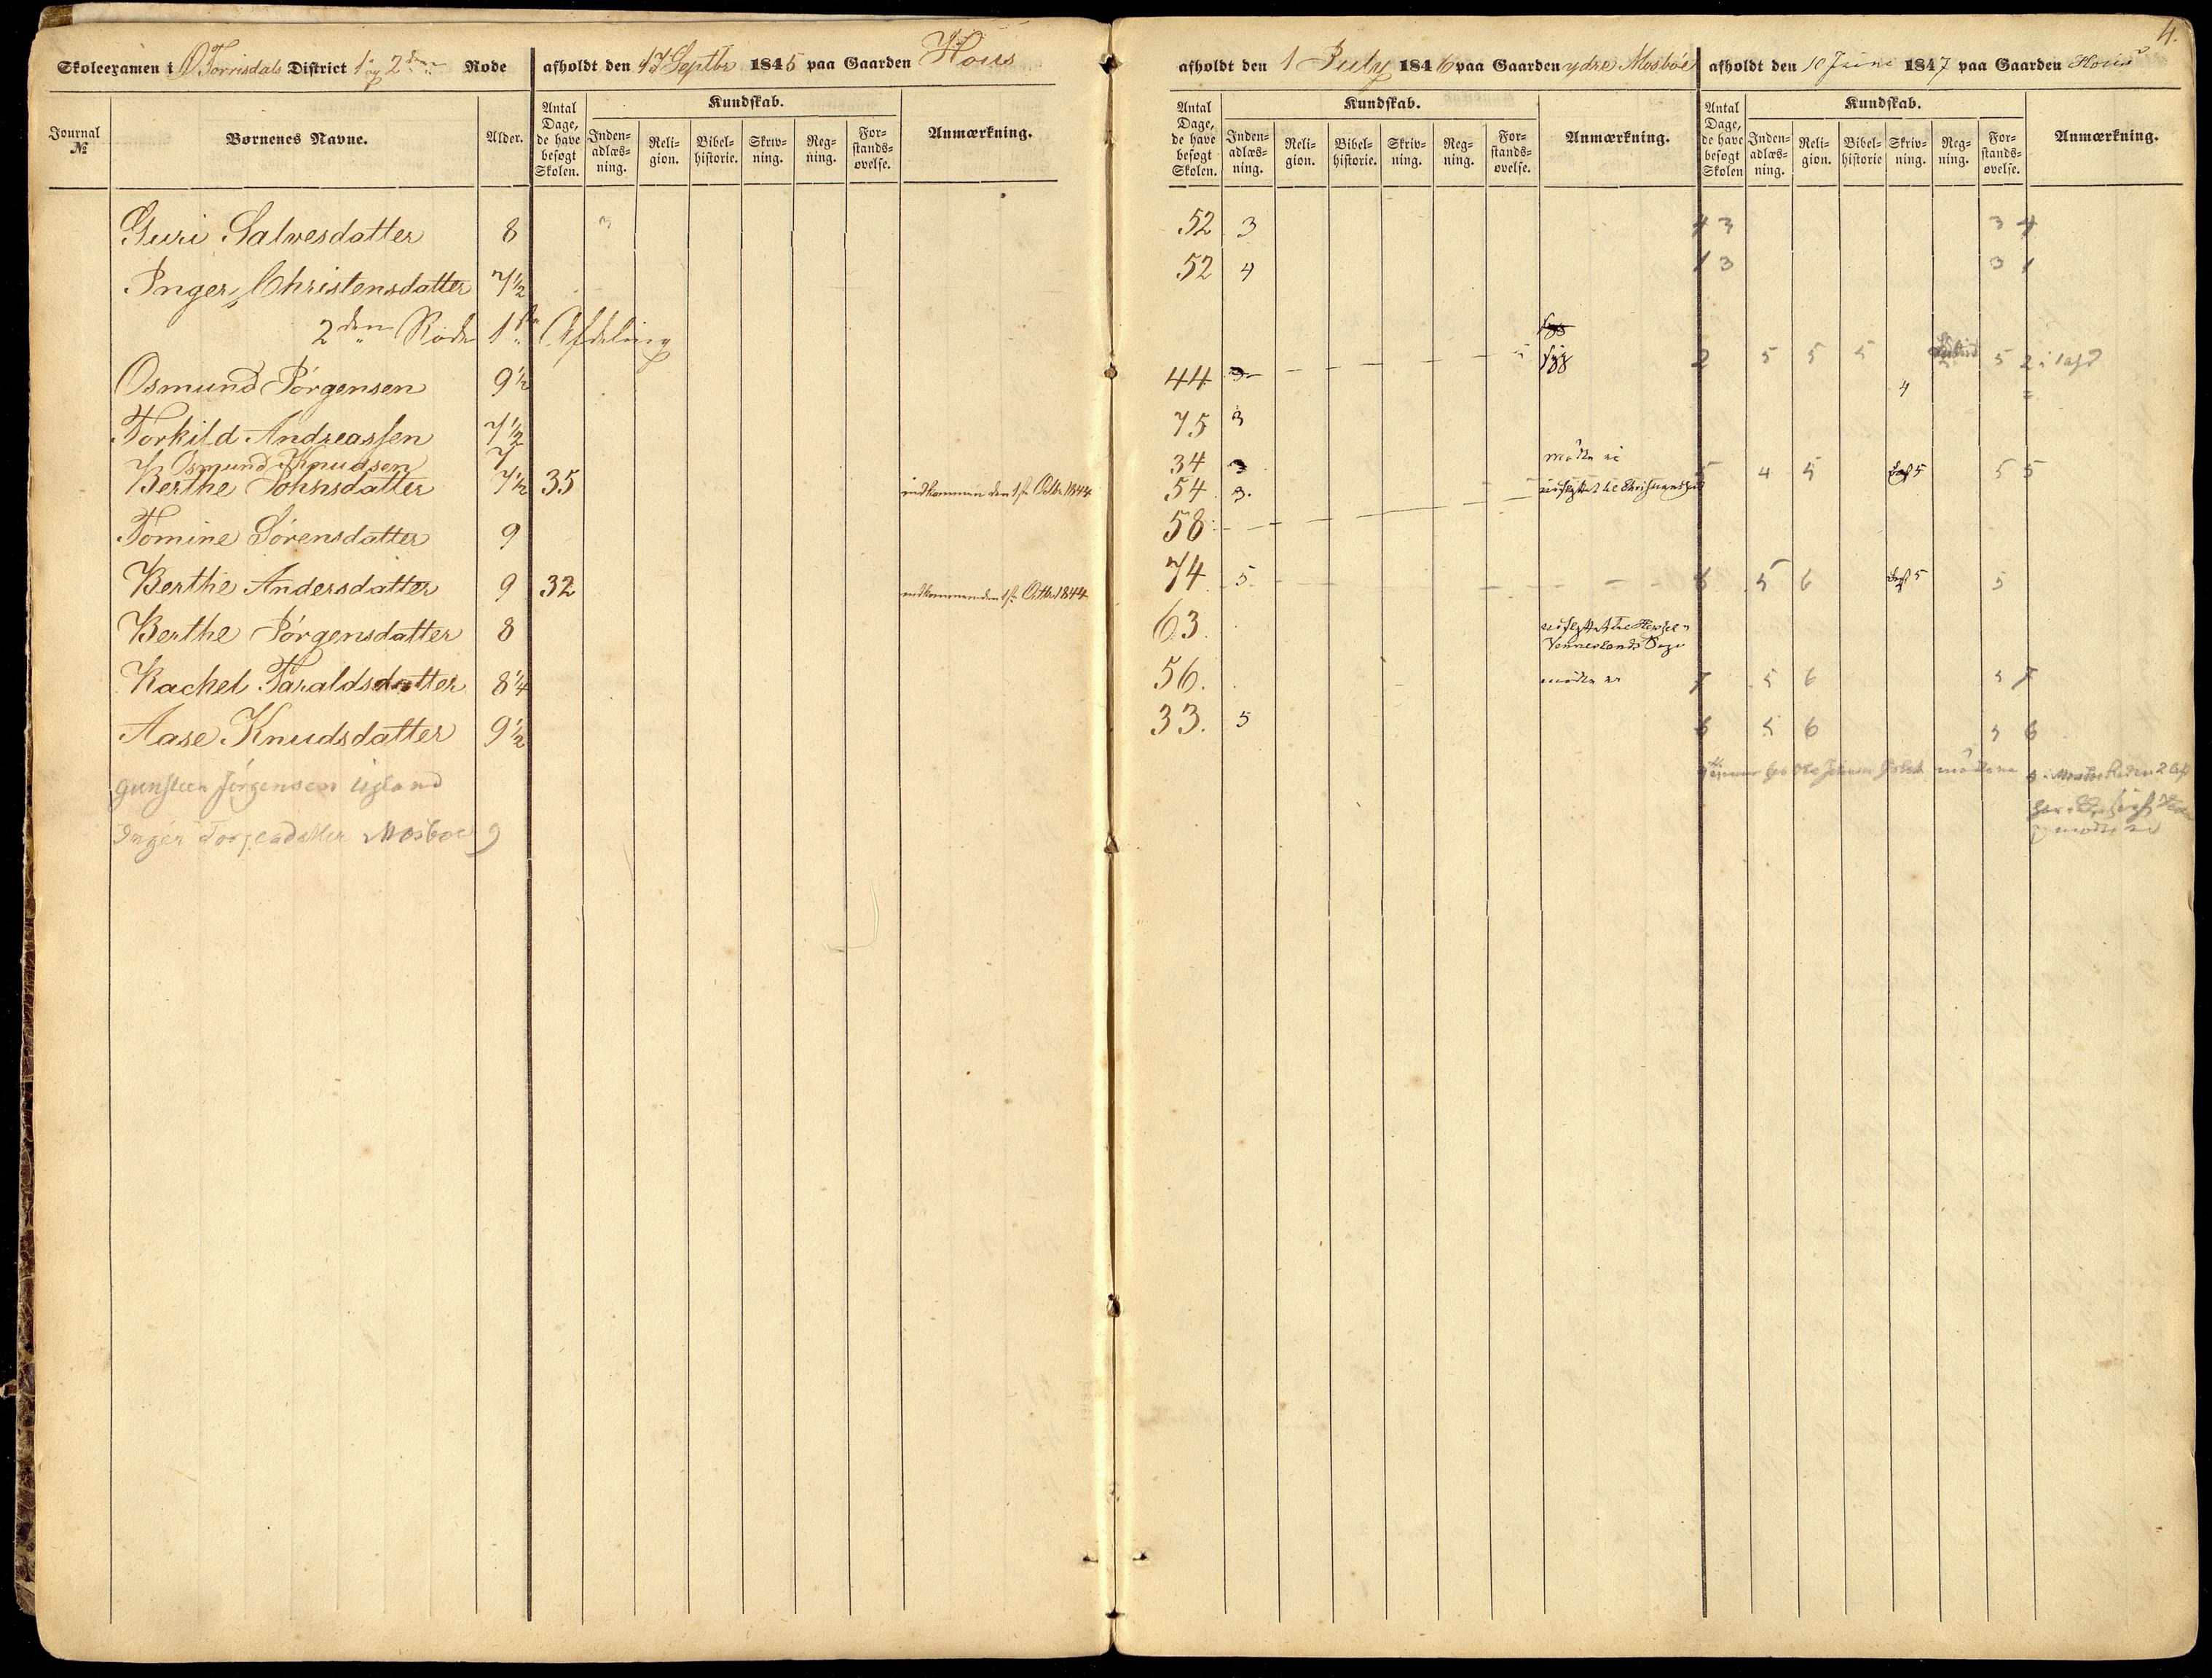 4.
Skoleexamen i Torrisdals District 1 og 2den Rode afholdt den 17 Septbr 1845 paa Gaarden Hous
afholdt den 1 July 1846 paa Gaarden ydre Mosbøe afholdt den 10 Juni 1847 paa Gaarden Hous
Journal № Børnenes Navne. Alder. Antal Dage, de have besøgt Skolen. Kundskab. Inden-adlæs-ning. Reli-gion. Bibel-historie. Skriv-ning. Reg-ning. For-stands-øvelse. Anmærkning.
Antal Dage, de have besøgt Skolen. Kundskab. Inden-adlæs-ning. Reli-gion. Bibel-historie. Skriv-ning. Reg-ning. For-stands-øvelse. Anmærkning.
Antal Dage, de have besøgt Skolen Kundskab. Inden-adlæs-ning. Reli-gion. Bibel-historie Skriv-ning. Reg-ning. For-stands-øvelse. Anmærkning.
Guri Salvesdatter 8 3 52 3 4 3 3 4
Inger Christensdatter 7½ 52 4 1 3 3 1
2den Rode 1ste Afdeling
Osmund Jörgensen 9½ 44 3 syg 2 5 5 5 5 2
Torkild Andreassen 7½ 75 3 4
Osmund Knudsen 7 34 3 mödte ei 5 4 5 5 5 5
Berthe Johnsdatter 7½ 35 indkommen den 1ste Octbr 1844 54 3. udflyttet til
Tomine Sörensdatter 9 58
Berthe Andersdatter 9 32 indkommen den 1ste Octbr 1844 74 5 6 5 6 5 5
Berthe Jörgensdatter 8 63. udflyttet til
Rachel Taraldsdatter 8¼ 56. mödte ei 7 5 6 5 7
Aase Knudsdatter 9½ 33. 5 6 5 6 5 6
Gunsteen Jörgensen Ugland
Inger Mosboe 9